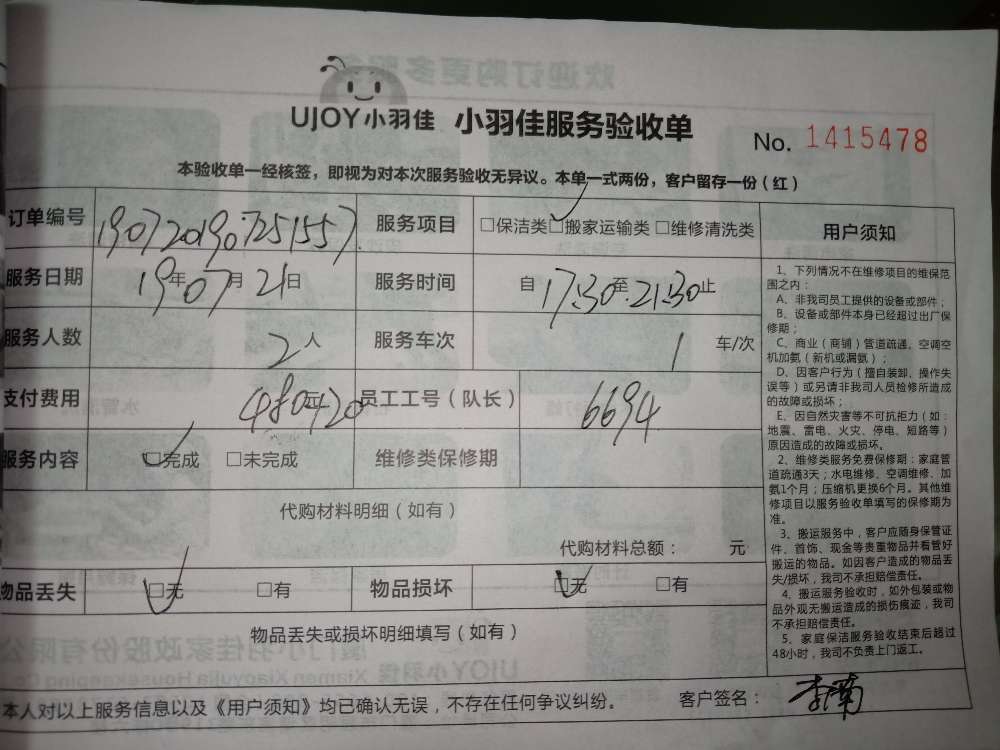 UJOY小羽佳 小羽佳服务验收单
No. 1415478
本验收单一经核签，即视为对本次服务验收无异议。本单一式两份，客户留存一份（红）
订单编号 1907201907251557 服务项目 □保洁类 □搬家运输类 □维修清洗类
服务日期 19年07月21日 服务时间 自17:30至21:30止
服务人数 2人 服务车次 1车/次
支付费用 480+120元 员工工号（队长） 6694
服务内容 □完成 □未完成 维修类保修期
代购材料明细（如有）
代购材料总额： 元
物品丢失 □无 □有 物品损坏 □无 □有
物品丢失或损坏明细填写（如有）
用户须知
1、下列情况不在维修项目的维保范
围之内：
A、非我司员工提供的设备或部件；
B、设备或部件本身已经超过出厂保
修期；
C、商业（商铺）管道疏通、空调空
机加氨（新机或漏氨）；
D、因客户行为（擅自装卸、操作失
误等）或另请非我司人员检修所造成
的故障或损坏；
E、因自然灾害等不可抗拒力（如：
地震、雷电、火灾、停电、短路等）
原因造成的故障或损坏。
2、维修类服务免费保修期：家庭管
道疏通3天；水电维修、空调维修、加
氨1个月；压缩机更换6个月。其他维
修项目以服务验收单填写的保修期为
准。
3、搬运服务中，客户应随身保管证
件、首饰、现金等贵重物品并看管好
搬运的物品。如因客户造成的物品丢
失/损坏，我司不承担赔偿责任。
4、搬运服务验收时，如外包装或物
品外观无搬运造成的损伤痕迹，我司
不承担赔偿责任。
5、家庭保洁服务验收结束后超过
48小时，我司不负责上门返工。
本人对以上服务信息以及《用户须知》均已确认无误，不存在任何争议纠纷。 客户签名：